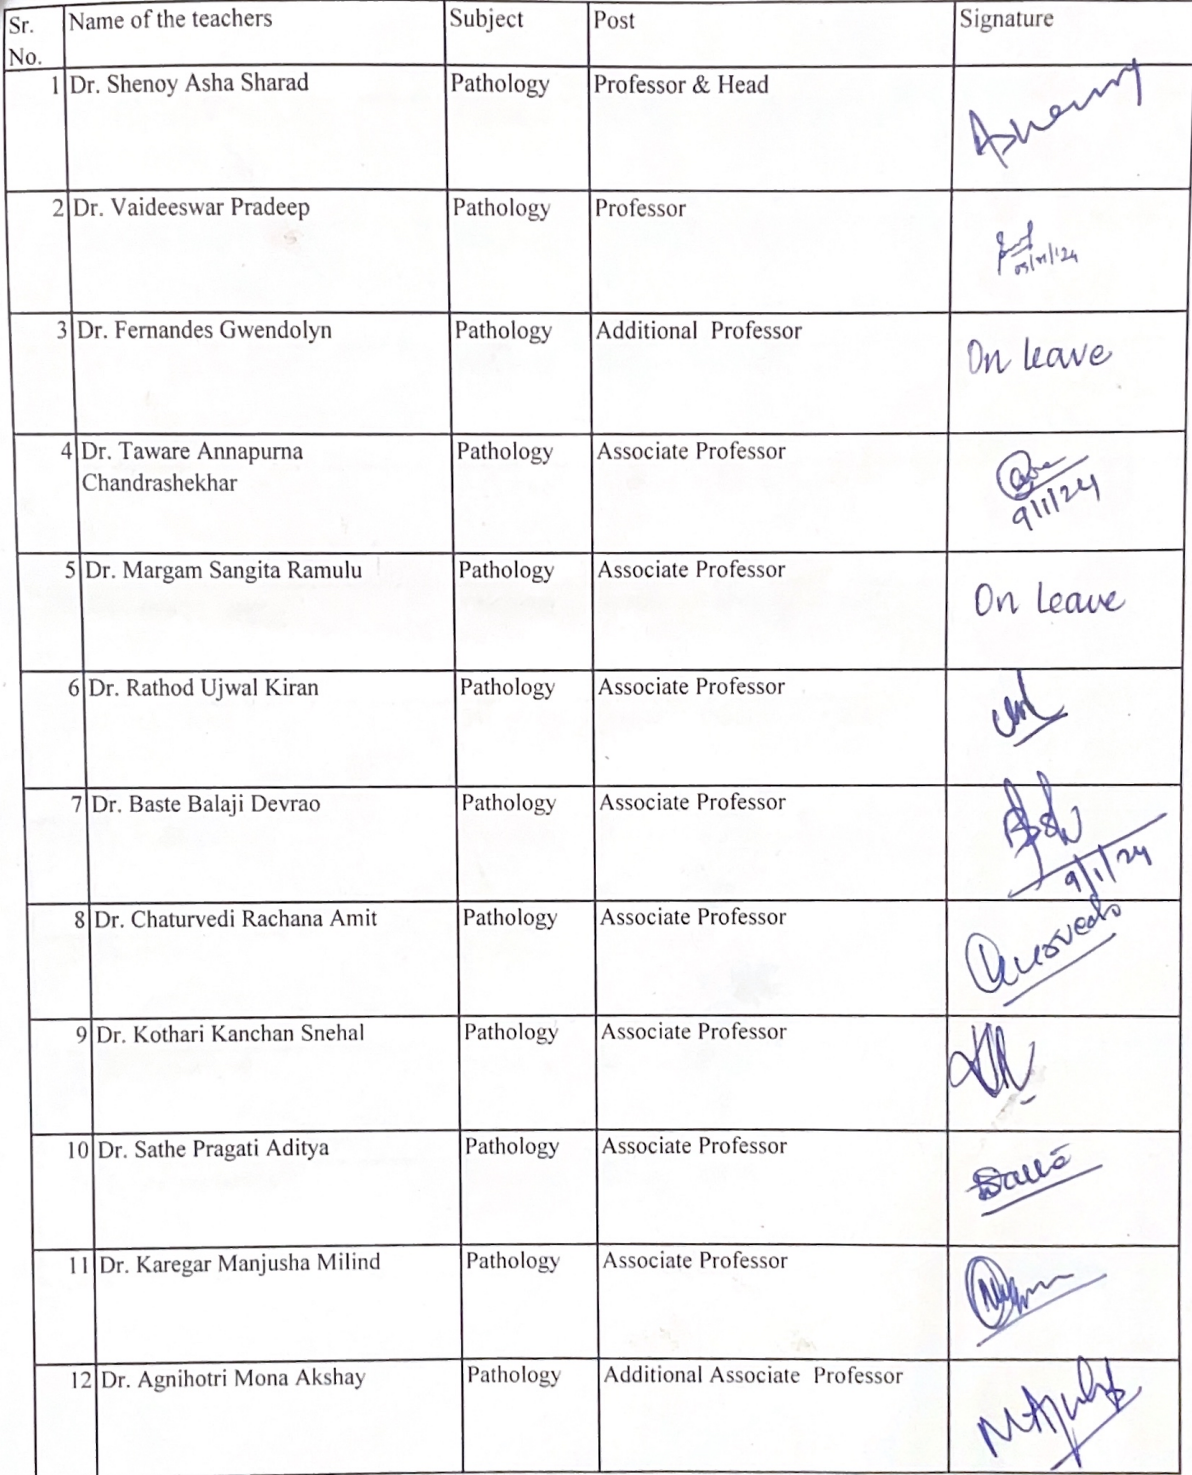 Sr. No. Name of the teachers Subject Post Signature
1 Dr. Shenoy Asha Sharad Pathology Professor & Head
2 Dr. Vaideeswar Pradeep Pathology Professor
3 Dr. Fernandes Gwendolyn Pathology Additional Professor On leave
4 Dr. Taware Annapurna Pathology Associate Professor
Chandrashekhar
9/1/24
5 Dr. Margam Sangita Ramulu Pathology Associate Professor On leave
6 Dr. Rathod Ujwal Kiran Pathology Associate Professor
7 Dr. Baste Balaji Devrao Pathology Associate Professor
9/1/24
8 Dr. Chaturvedi Rachana Amit Pathology Associate Professor
9 Dr. Kothari Kanchan Snehal Pathology Associate Professor
10 Dr. Sathe Pragati Aditya Pathology Associate Professor
11 Dr. Karegar Manjusha Milind Pathology Associate Professor
12 Dr. Agnihotri Mona Akshay Pathology Additional Associate Professor